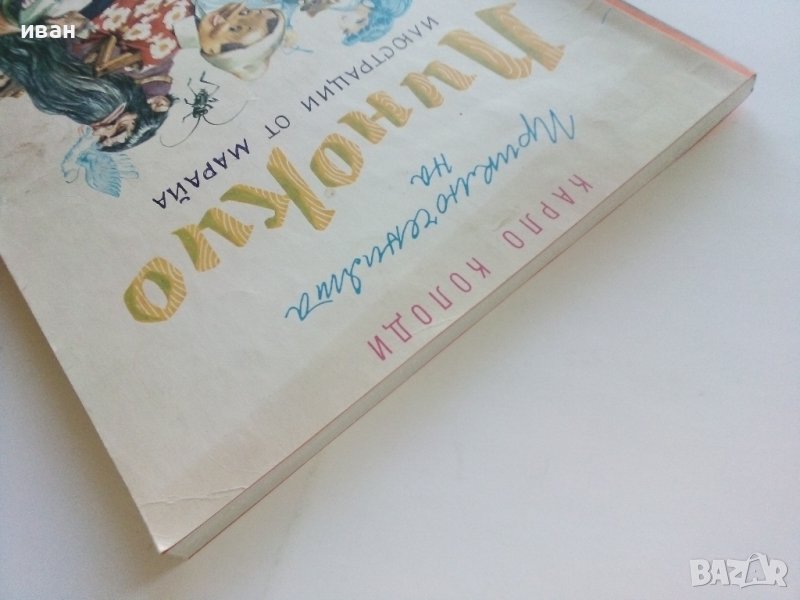 КАРЛО КОЛОДИ
Приключенията
на
ПиноКио
ИЛЮСТРАЦИИ ОТ МАРАЙА
иван
BAZAR